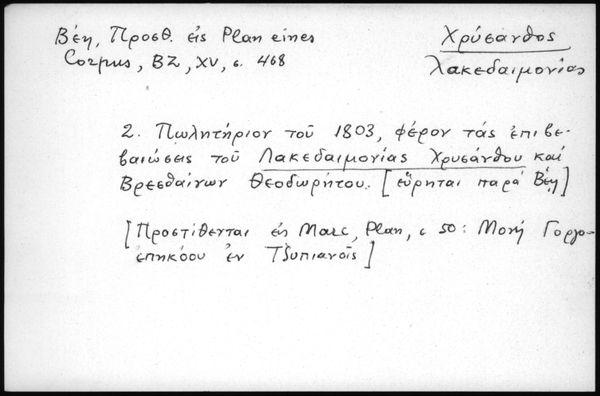 Βέη, Προσθ. εἰς Plan eines
Corpus, BZ, XV, σ. 468
Χρύσανθος
Λακεδαιμονίας
2. Πωλητήριον τοῦ 1803, φέρον τάς ἐπιβε-
βαιώσεις τοῦ Λακεδαιμονίας Χρυσάνθου καί
Βρεσθαίνων Θεοδωρήτου. [εὕρηται παρά Βέη]
[Προστίθενται εἰς Marc, Plan, σ 50: Μονή Γοργο-
επηκόου ἐν Τζιπιανοῖς]